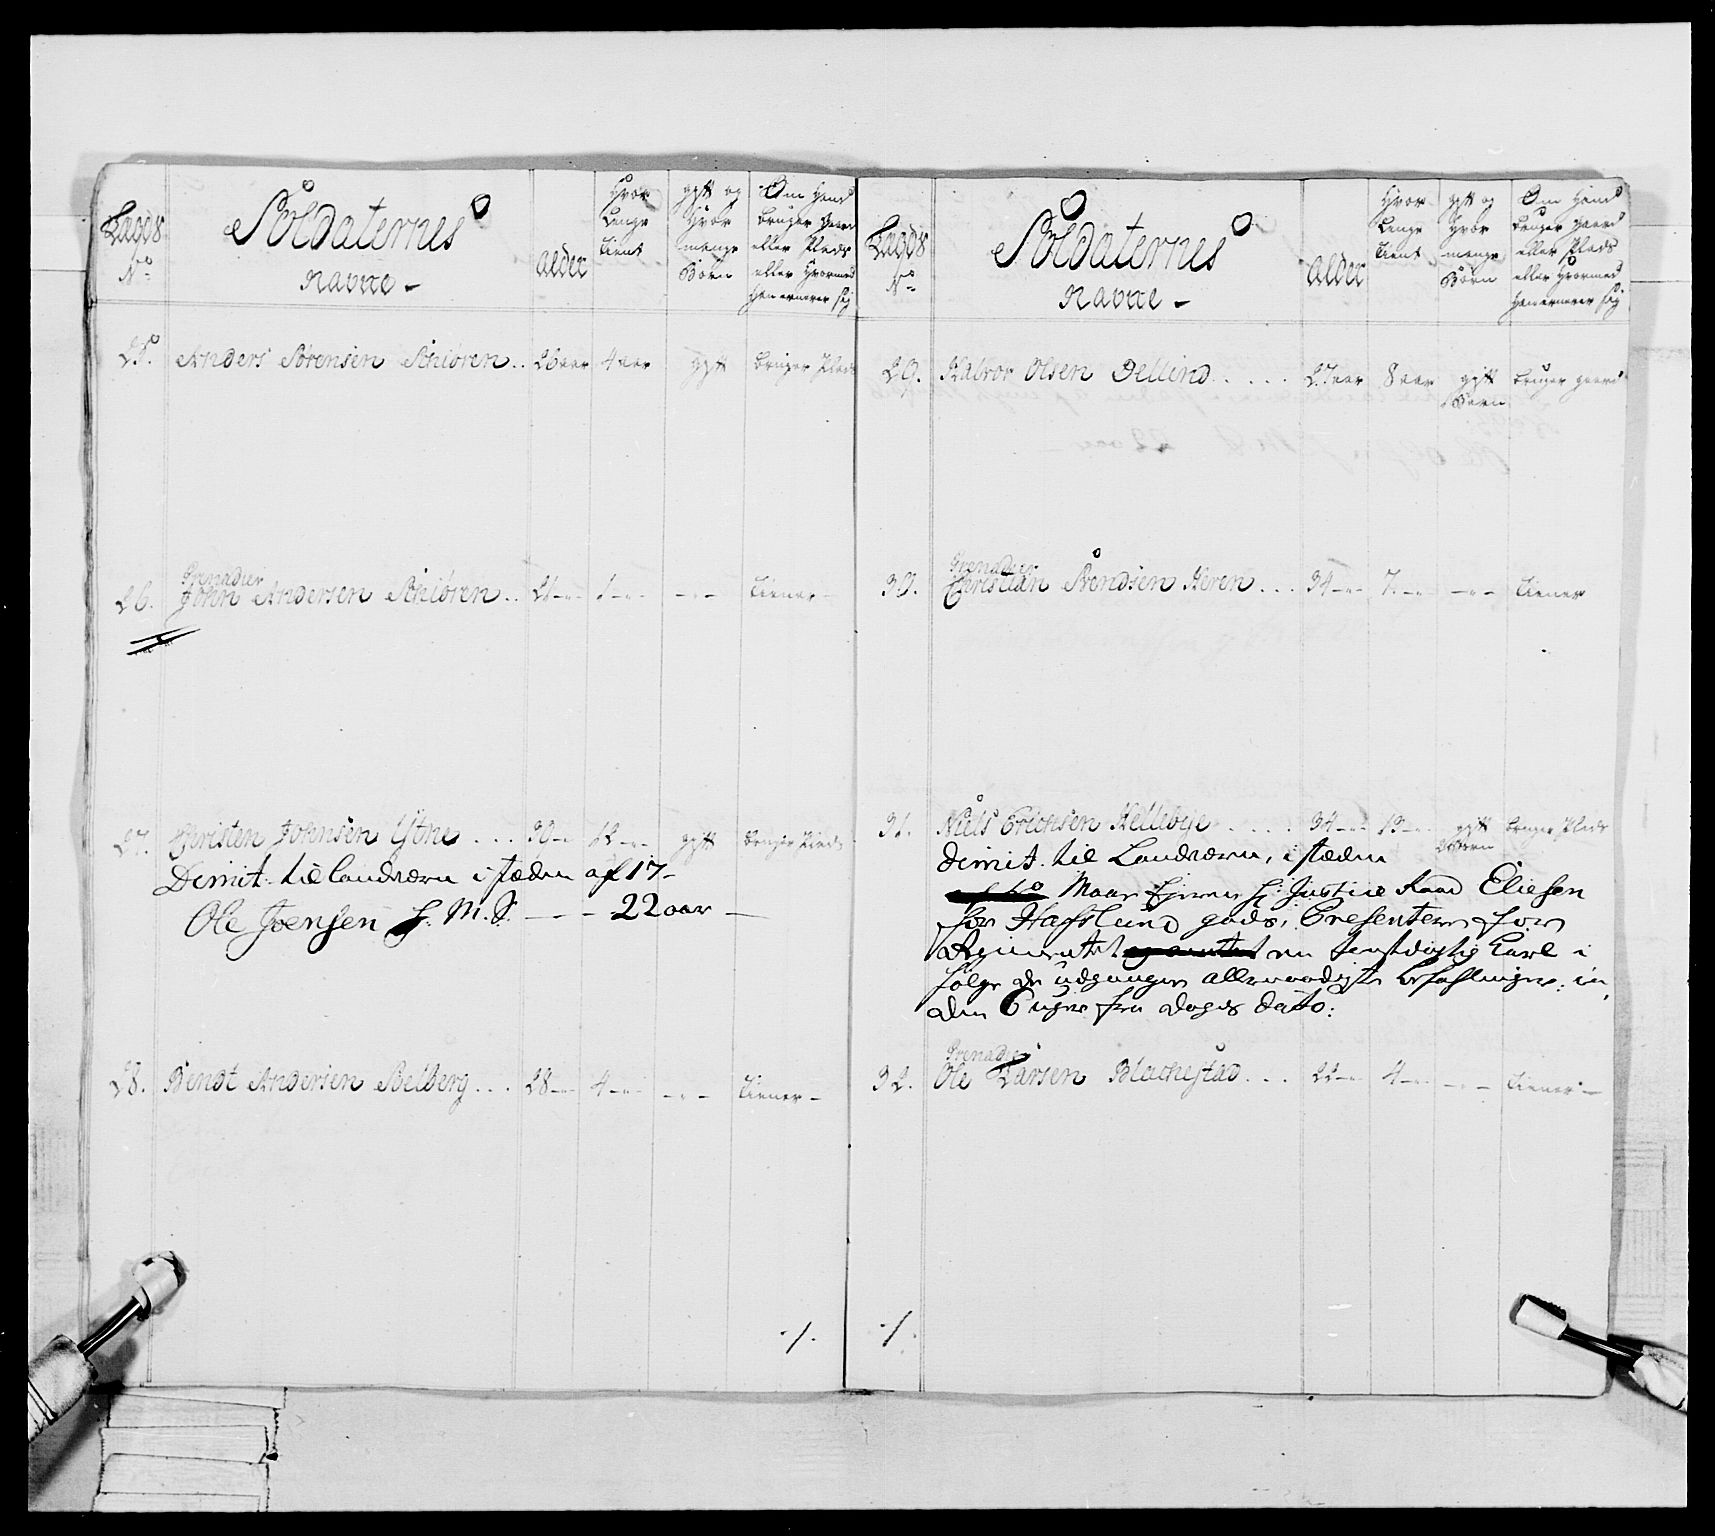 Lægds
No
Soldaternes
Navne -
alder
Hvor
Lenge
tient
gift og
Hvor
mange
Børn
Om Hand
bruger gaard
eller Plads
eller Hvormed
Han ernerer sig
25. Anders Sørensen Schiøren .. 26 aar 4 aar gift bruger Plads
Grenadier
26. John Andersen Schiøren .. 1 - " - - " - tiener -
27. Christen Johnsen Ystne .... 30 - " 12 - " - gift bruger Plads
Dimit. til landværn i stæden af 17 -
Ole Joensen f. M. S. - - - 22 aar -
28. Bendt Andersen Solberg ... 28 - " - 4 - " - - " - tiener -
./.
Lægds
No
Soldaternes
Navne -
alder
Hvor
Lenge
tient
gift og
Hvor
mange
Børn
Om Hand
bruger gaard
eller Plads
eller Hvormed
Han ernerer sig
29. Halvor Olsen Dellind ..... 27 aar 8 aar gift bruger gaard
Børn
Grenadier
30. Christian Svendsen Heren ... 34 - " - 7 - " - " - tiener
31. Niels Erichsen Hellebye ..... 34 - " - 13 - " - gift bruger Plads
Børn
dimit. til Landværn, i stæden
Justice Raad Eliesen
for Hafslund gods, Presenterer for
Regimentet en tienstdygtig Karl i
følge de udgangne allernaadigste befahlinger, in
den 6 uger fra dags dato:
Grenadier
32. Ole Larsen Blachestad ... 22 - " - 4 - " - - " - tiener -
./.